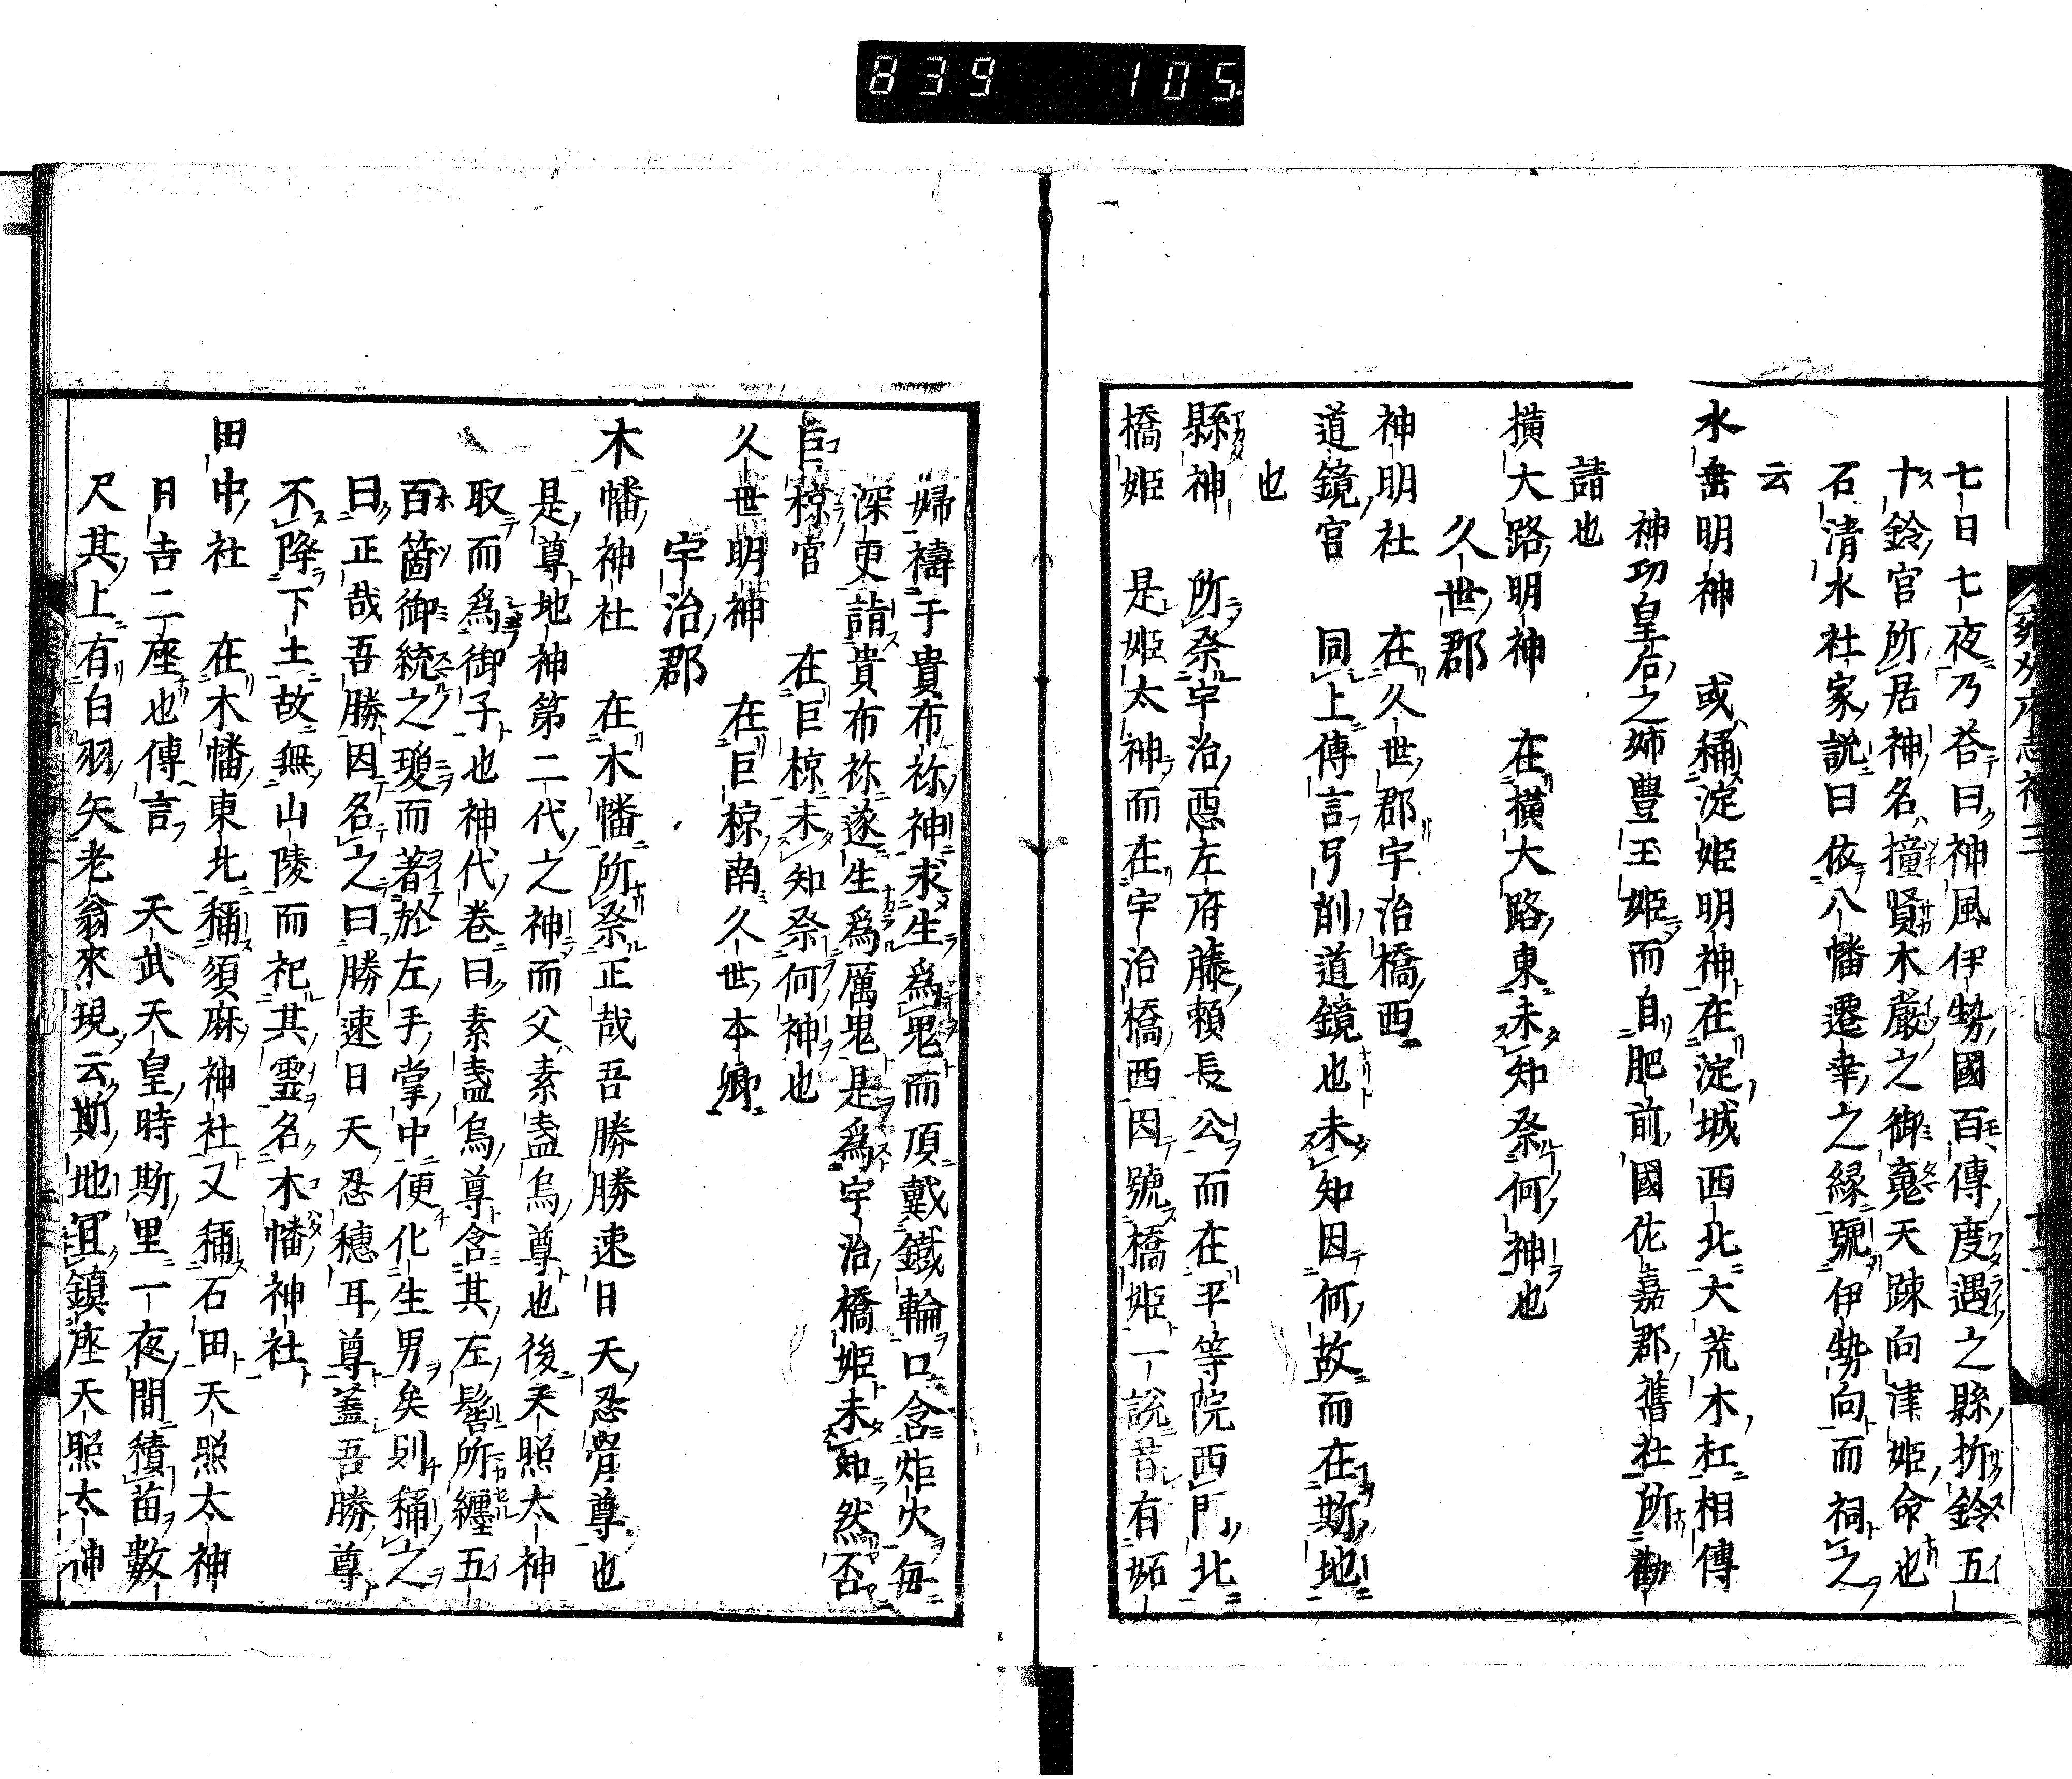 839 105
七日七夜乃荅曰神風伊勢國百傳度遇之縣折鈴五
十鈴宮所居神名撞賢木嚴之御䰟天踈向津姫命也
石清水社家説曰依八幡遷幸之縁號伊勢向而祠之
云
水垂明神 或稱淀姫明神在淀城西北大荒木杜相傳
神功皇后之姉豐玉姫而自肥前國佐嘉郡舊社所勸
請也
横大路明神 在横大路東未知祭何神也
久世郡
神明社 在久世郡宇治橋西
道鏡宮 同上傳言弓削道鏡也未知因何故而在斯地
也
縣神 所祭宇治惡左府藤頼長公而在平等院西門北
橋姫 是姫太神而在宇治橋西因號橋姫一説昔有妬
婦禱于貴布祢神求生爲鬼而頂戴鐵輪口含炬火毎
深更詣貴布祢遂生爲厲鬼是爲宇治橋姫未知然否
巨椋宮 在巨椋未知祭何神也
久世明神 在巨椋南久世本郷
宇治郡
木幡神社 在木幡所祭正哉吾勝勝速日天忍骨尊也
是尊地神第二代之神而父素盞烏尊也後天照太神
取而爲御子也神代卷曰素盞烏尊含其左髻所纏五
百箇御統之瓊而著於左手掌中便化生男矣則稱之
曰正哉吾勝因名之曰勝速日天忍穗耳尊蓋吾勝尊
不降下土故無山陵而祀其靈名木幡神社
田中社 在木幡東北稱須麻神社又稱石田天照太神
月吉二座也傳言 天武天皇時斯里一夜間積苗數
尺其上有白羽矢老翁來現云斯地冝鎮座天照太神